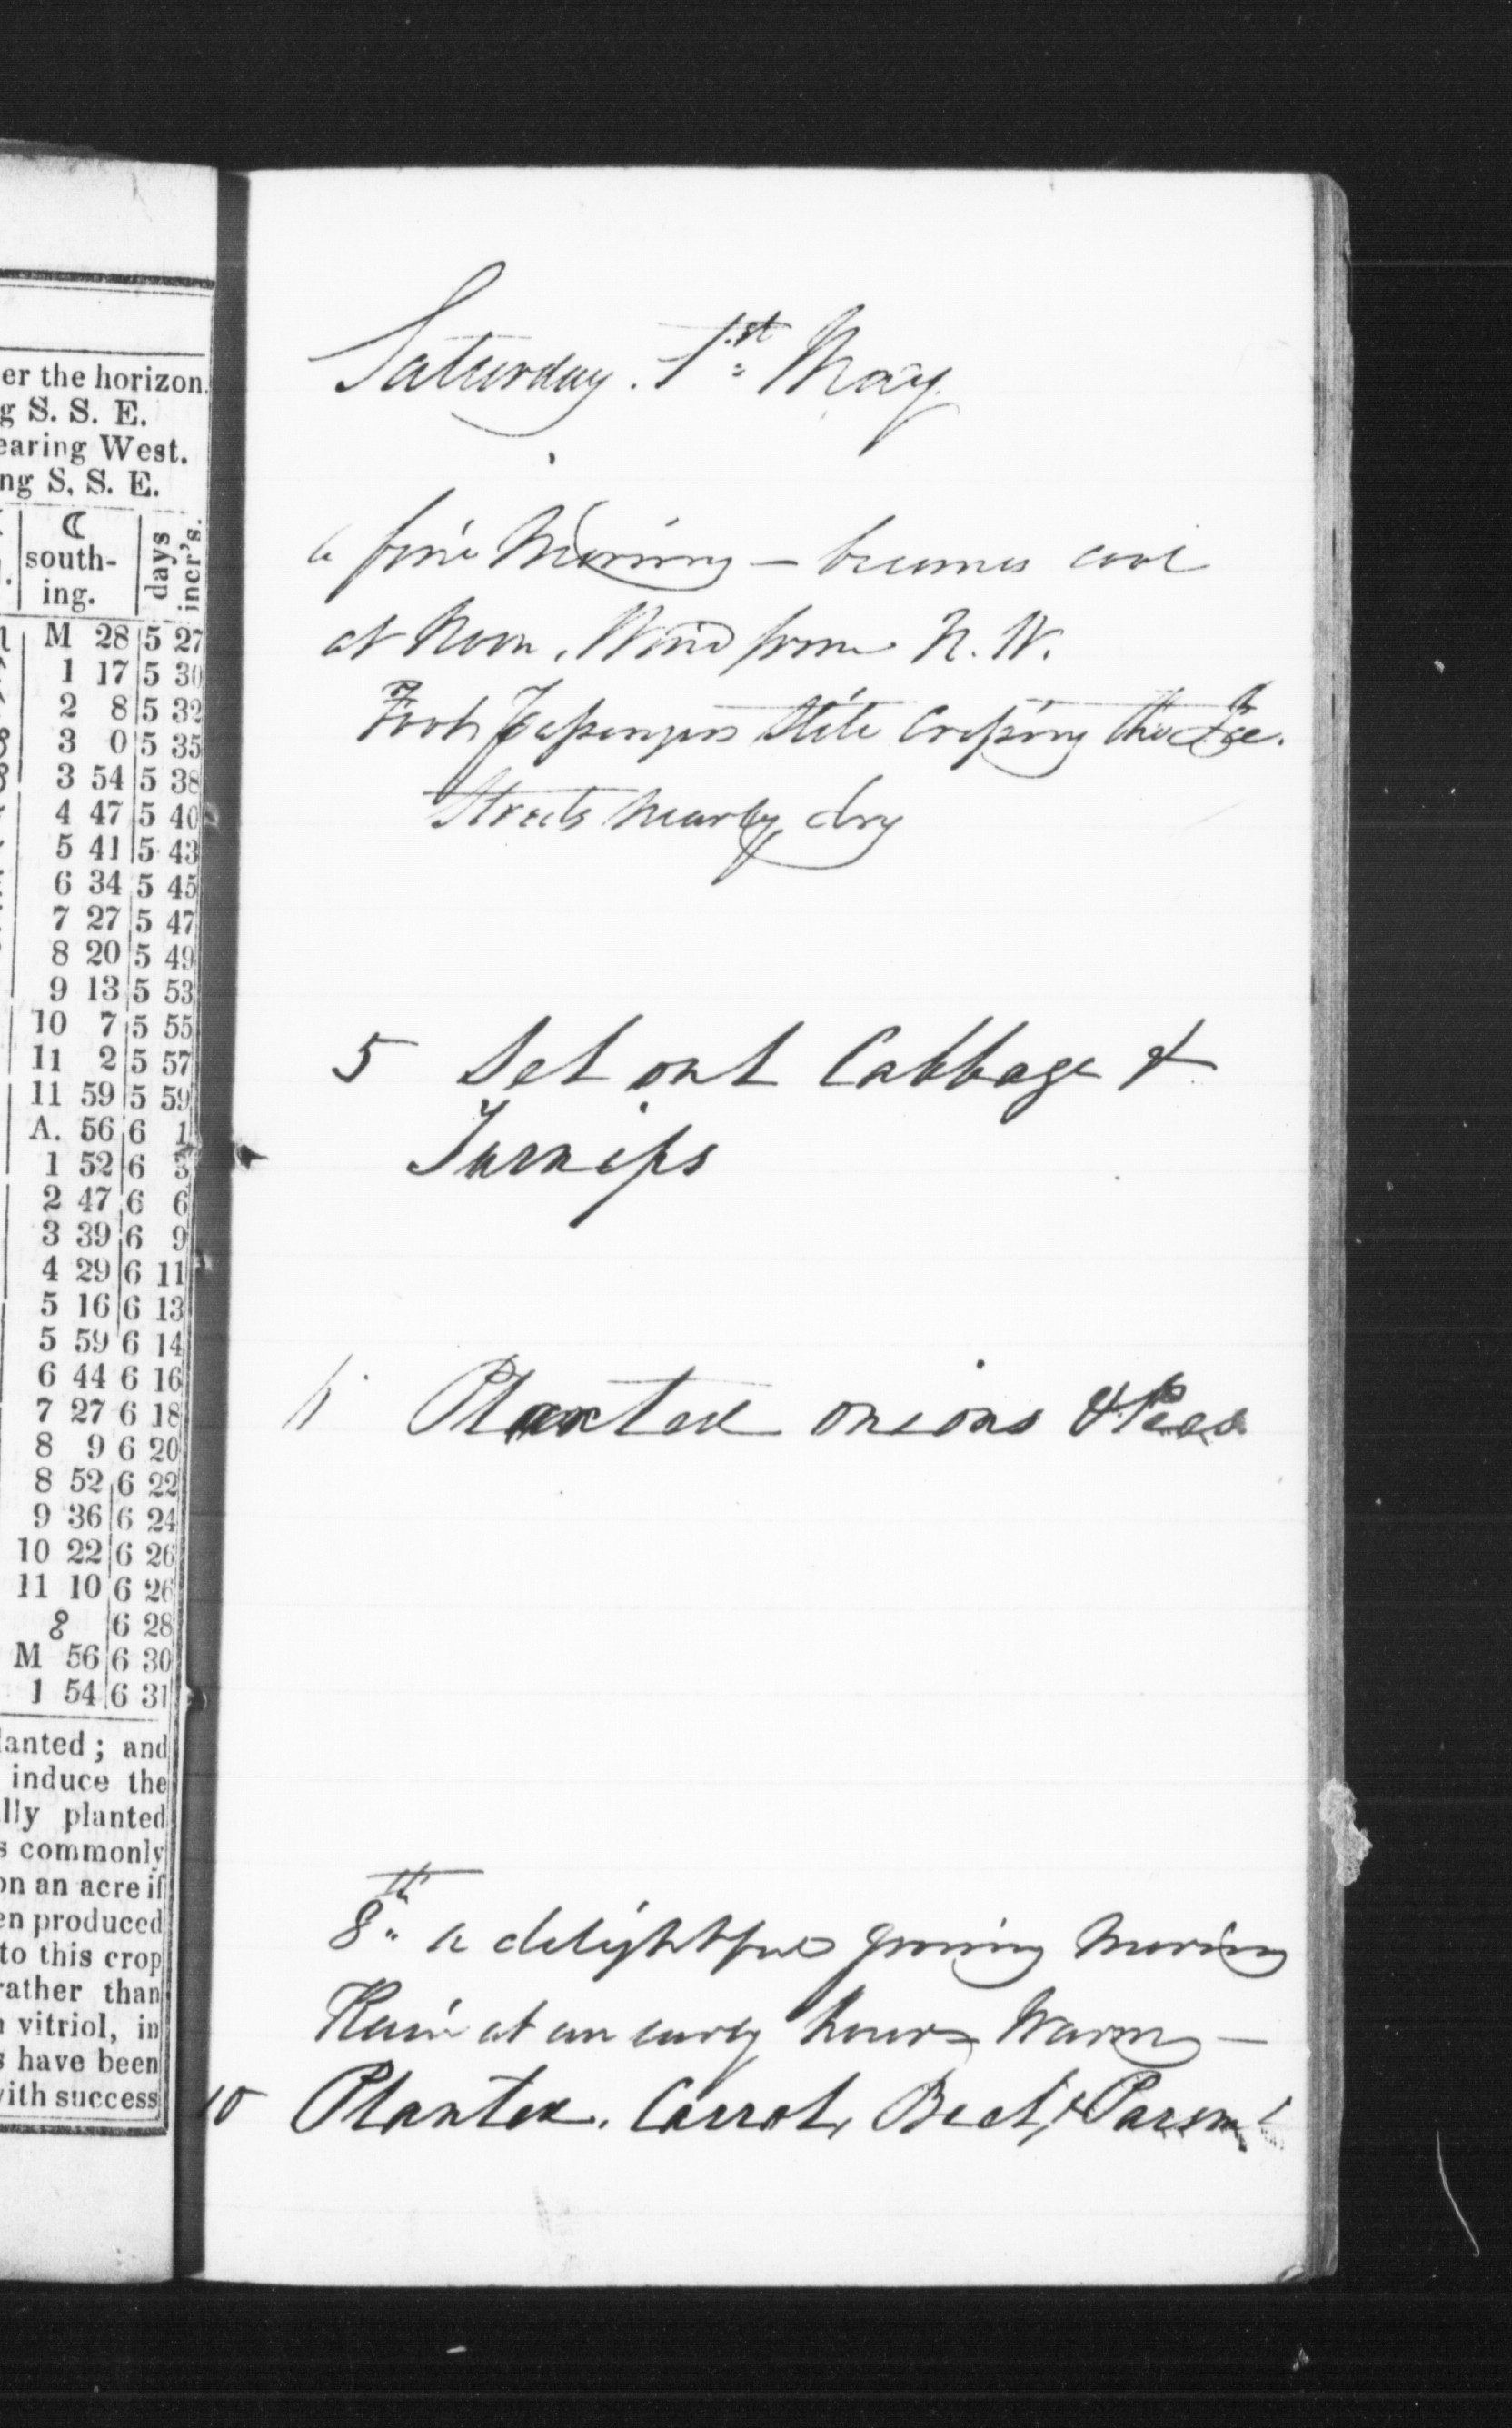 er the horizon.
g S. S. E.
earing West.
ng S. S. E.
☾ south- ing. days incr's.
M 28 5 27
1 17 5 30
2 8 5 32
3 0 5 35
3 54 5 38
4 47 5 40
5 41 5 43
6 34 5 45
7 27 5 47
8 20 5 49
9 13 5 53
10 7 5 55
11 2 5 57
11 59 5 59
A. 56 6 1
1 52 6 3
2 47 6 6
3 39 6 9
4 29 6 11
5 16 6 13
5 59 6 14
6 44 6 16
7 27 6 18
8 9 6 20
8 52 6 22
9 36 6 24
10 22 6 26
11 10 6 26
6 28
M 56 6 30
1 54 6 31
lanted; and
induce the
lly planted
s commonly
on an acre if
en produced
to this crop
rather than
n vitriol, in
s have been
with success
Saturday. 1st May
a fine Morning – becomes cool
at Noon, Wind from N. W.
Foot Passengers still Crossing the Ice.
Streets nearly dry
5 Set out Cabbage &
Turnips
Planted onions & Peas
8th a delightful growing morning
Rain at an early hour Warm –
10 Planted. Carrot, Beet, & Parsn